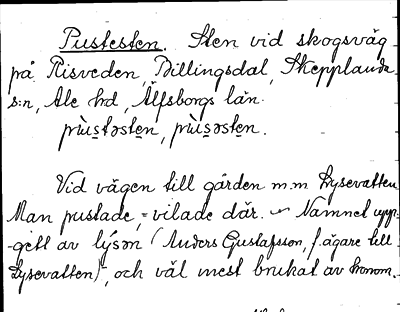 Pustesten. Sten vid skogsväg
på Risveden, Billingsdal, Skepplanda
s:n, Ale hd, Älfsborgs län.
pùs̲təste̲n, pùs̲əste̲n.
Vid vägen till gården m.m Lysevatten
Man pustade, = vilade där. — Namnet upp-
-gett av lýsən (Anders Gustafsson, f. ägare till
Lysevatten), och väl mest brukat av honom.